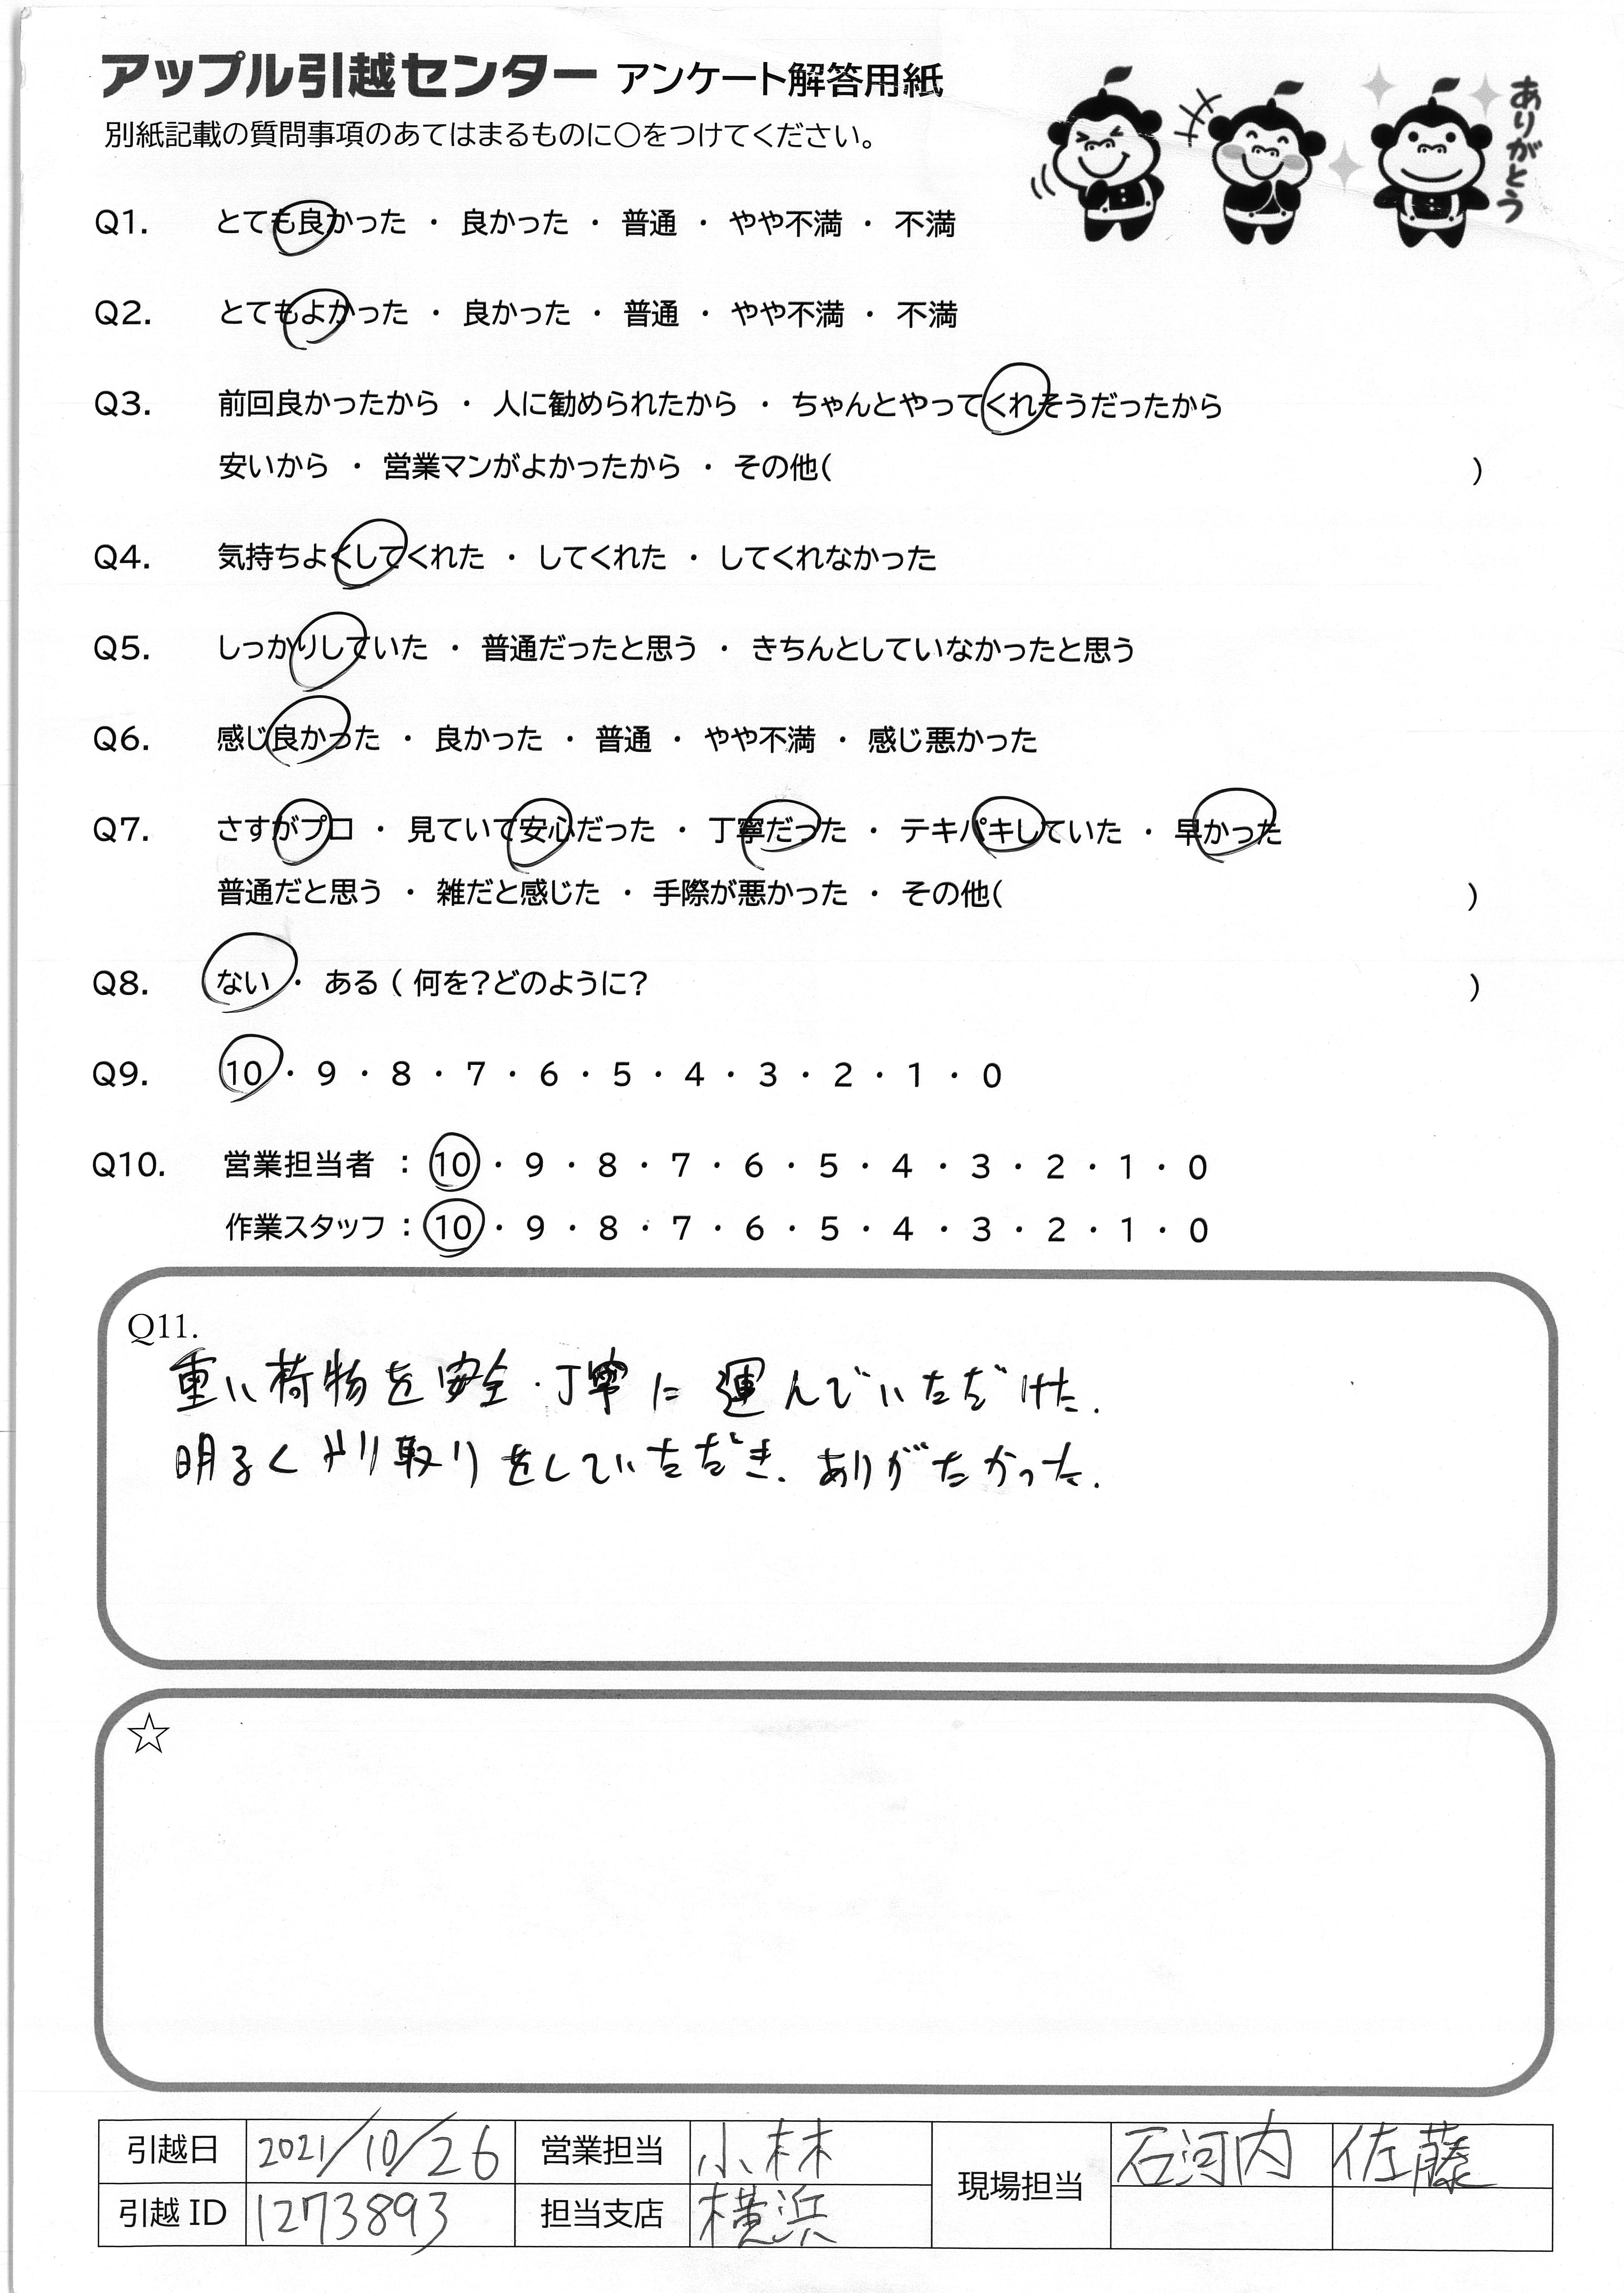 アップル引越センター アンケート解答用紙
別紙記載の質問事項のあてはまるものに○をつけてください。
ありがとう
Q1. とても良かった ・ 良かった ・ 普通 ・ やや不満 ・ 不満
Q2. とてもよかった ・ 良かった ・ 普通 ・ やや不満 ・ 不満
Q3. 前回良かったから ・ 人に勧められたから ・ ちゃんとやってくれそうだったから
安いから ・ 営業マンがよかったから ・ その他( )
Q4. 気持ちよくしてくれた ・ してくれた ・ してくれなかった
Q5. しっかりしていた ・ 普通だったと思う ・ きちんとしていなかったと思う
Q6. 感じ良かった ・ 良かった ・ 普通 ・ やや不満 ・ 感じ悪かった
Q7. さすがプロ ・ 見ていて安心だった ・ 丁寧だった ・ テキパキしていた ・ 早かった
普通だと思う ・ 雑だと感じた ・ 手際が悪かった ・ その他( )
Q8. ない ・ ある ( 何を?どのように? )
Q9. 10 ・ 9 ・ 8 ・ 7 ・ 6 ・ 5 ・ 4 ・ 3 ・ 2 ・ 1 ・ 0
Q10. 営業担当者 : 10 ・ 9 ・ 8 ・ 7 ・ 6 ・ 5 ・ 4 ・ 3 ・ 2 ・ 1 ・ 0
作業スタッフ : 10 ・ 9 ・ 8 ・ 7 ・ 6 ・ 5 ・ 4 ・ 3 ・ 2 ・ 1 ・ 0
Q11.
重い荷物を安全・丁寧に運んでいただけた.
明るくやり取りをしていただき、ありがたかった.
☆
引越日 2021/10/26 営業担当 小林 現場担当 石河内 佐藤
引越ID 1273893 担当支店 横浜